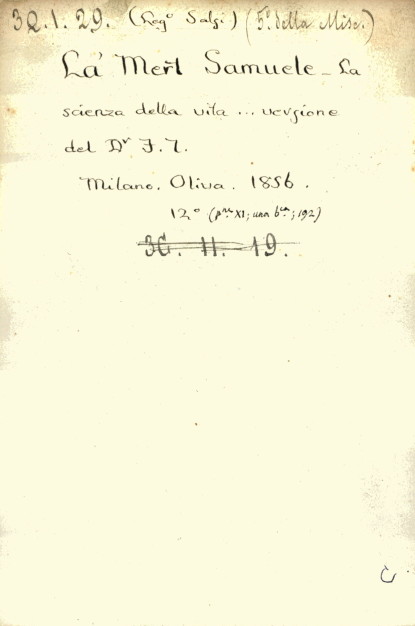 3Q.1.29. (Leg.º Salgi) (5ª della Misc.)
La' Mert Samuele - La
scienza della vita ... versione
del Dr J. T.
Milano. Oliva. 1856.
12º (pne XI; una bca; 192)
3C. 11. 19.
C